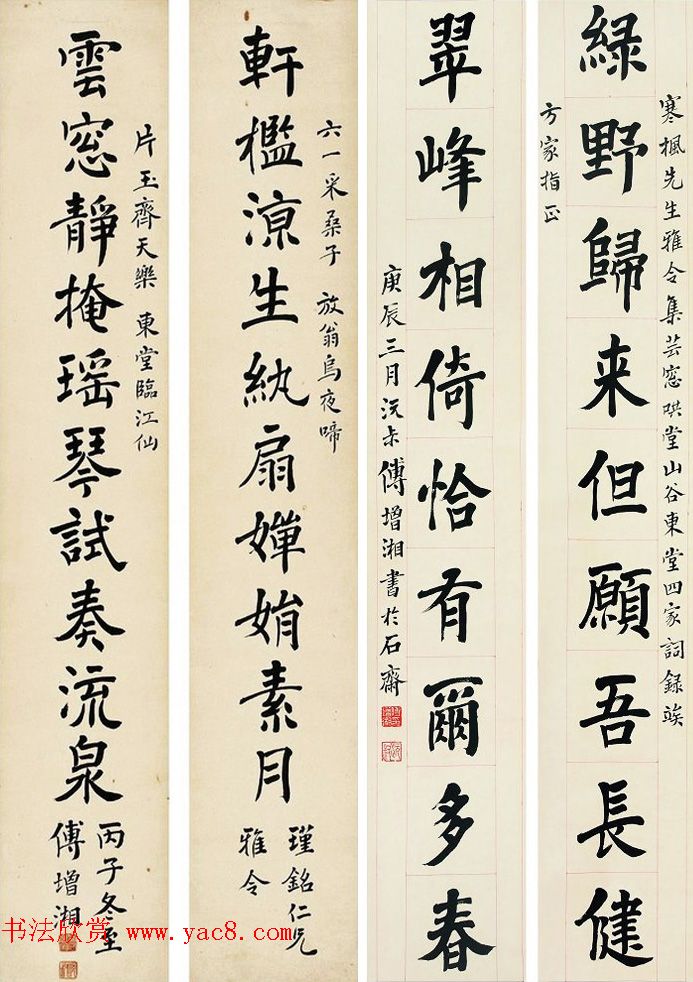 寒楓先生雅令集芸窓哄堂山谷東堂四家詞録竢
綠野歸来但願吾長健
方家指正
翠峰相倚恰有爾多春
庚辰三月沅尗傅增湘書於石齋
六一采桑子 放翁烏夜啼
軒檻凉生紈扇嬋娟素月
瑾銘仁兄
雅令
片玉齊天樂 東堂臨江仙
雲窓靜掩瑶琴試奏流泉
丙子冬至
傅增湘
书法欣赏 www.yac8.com